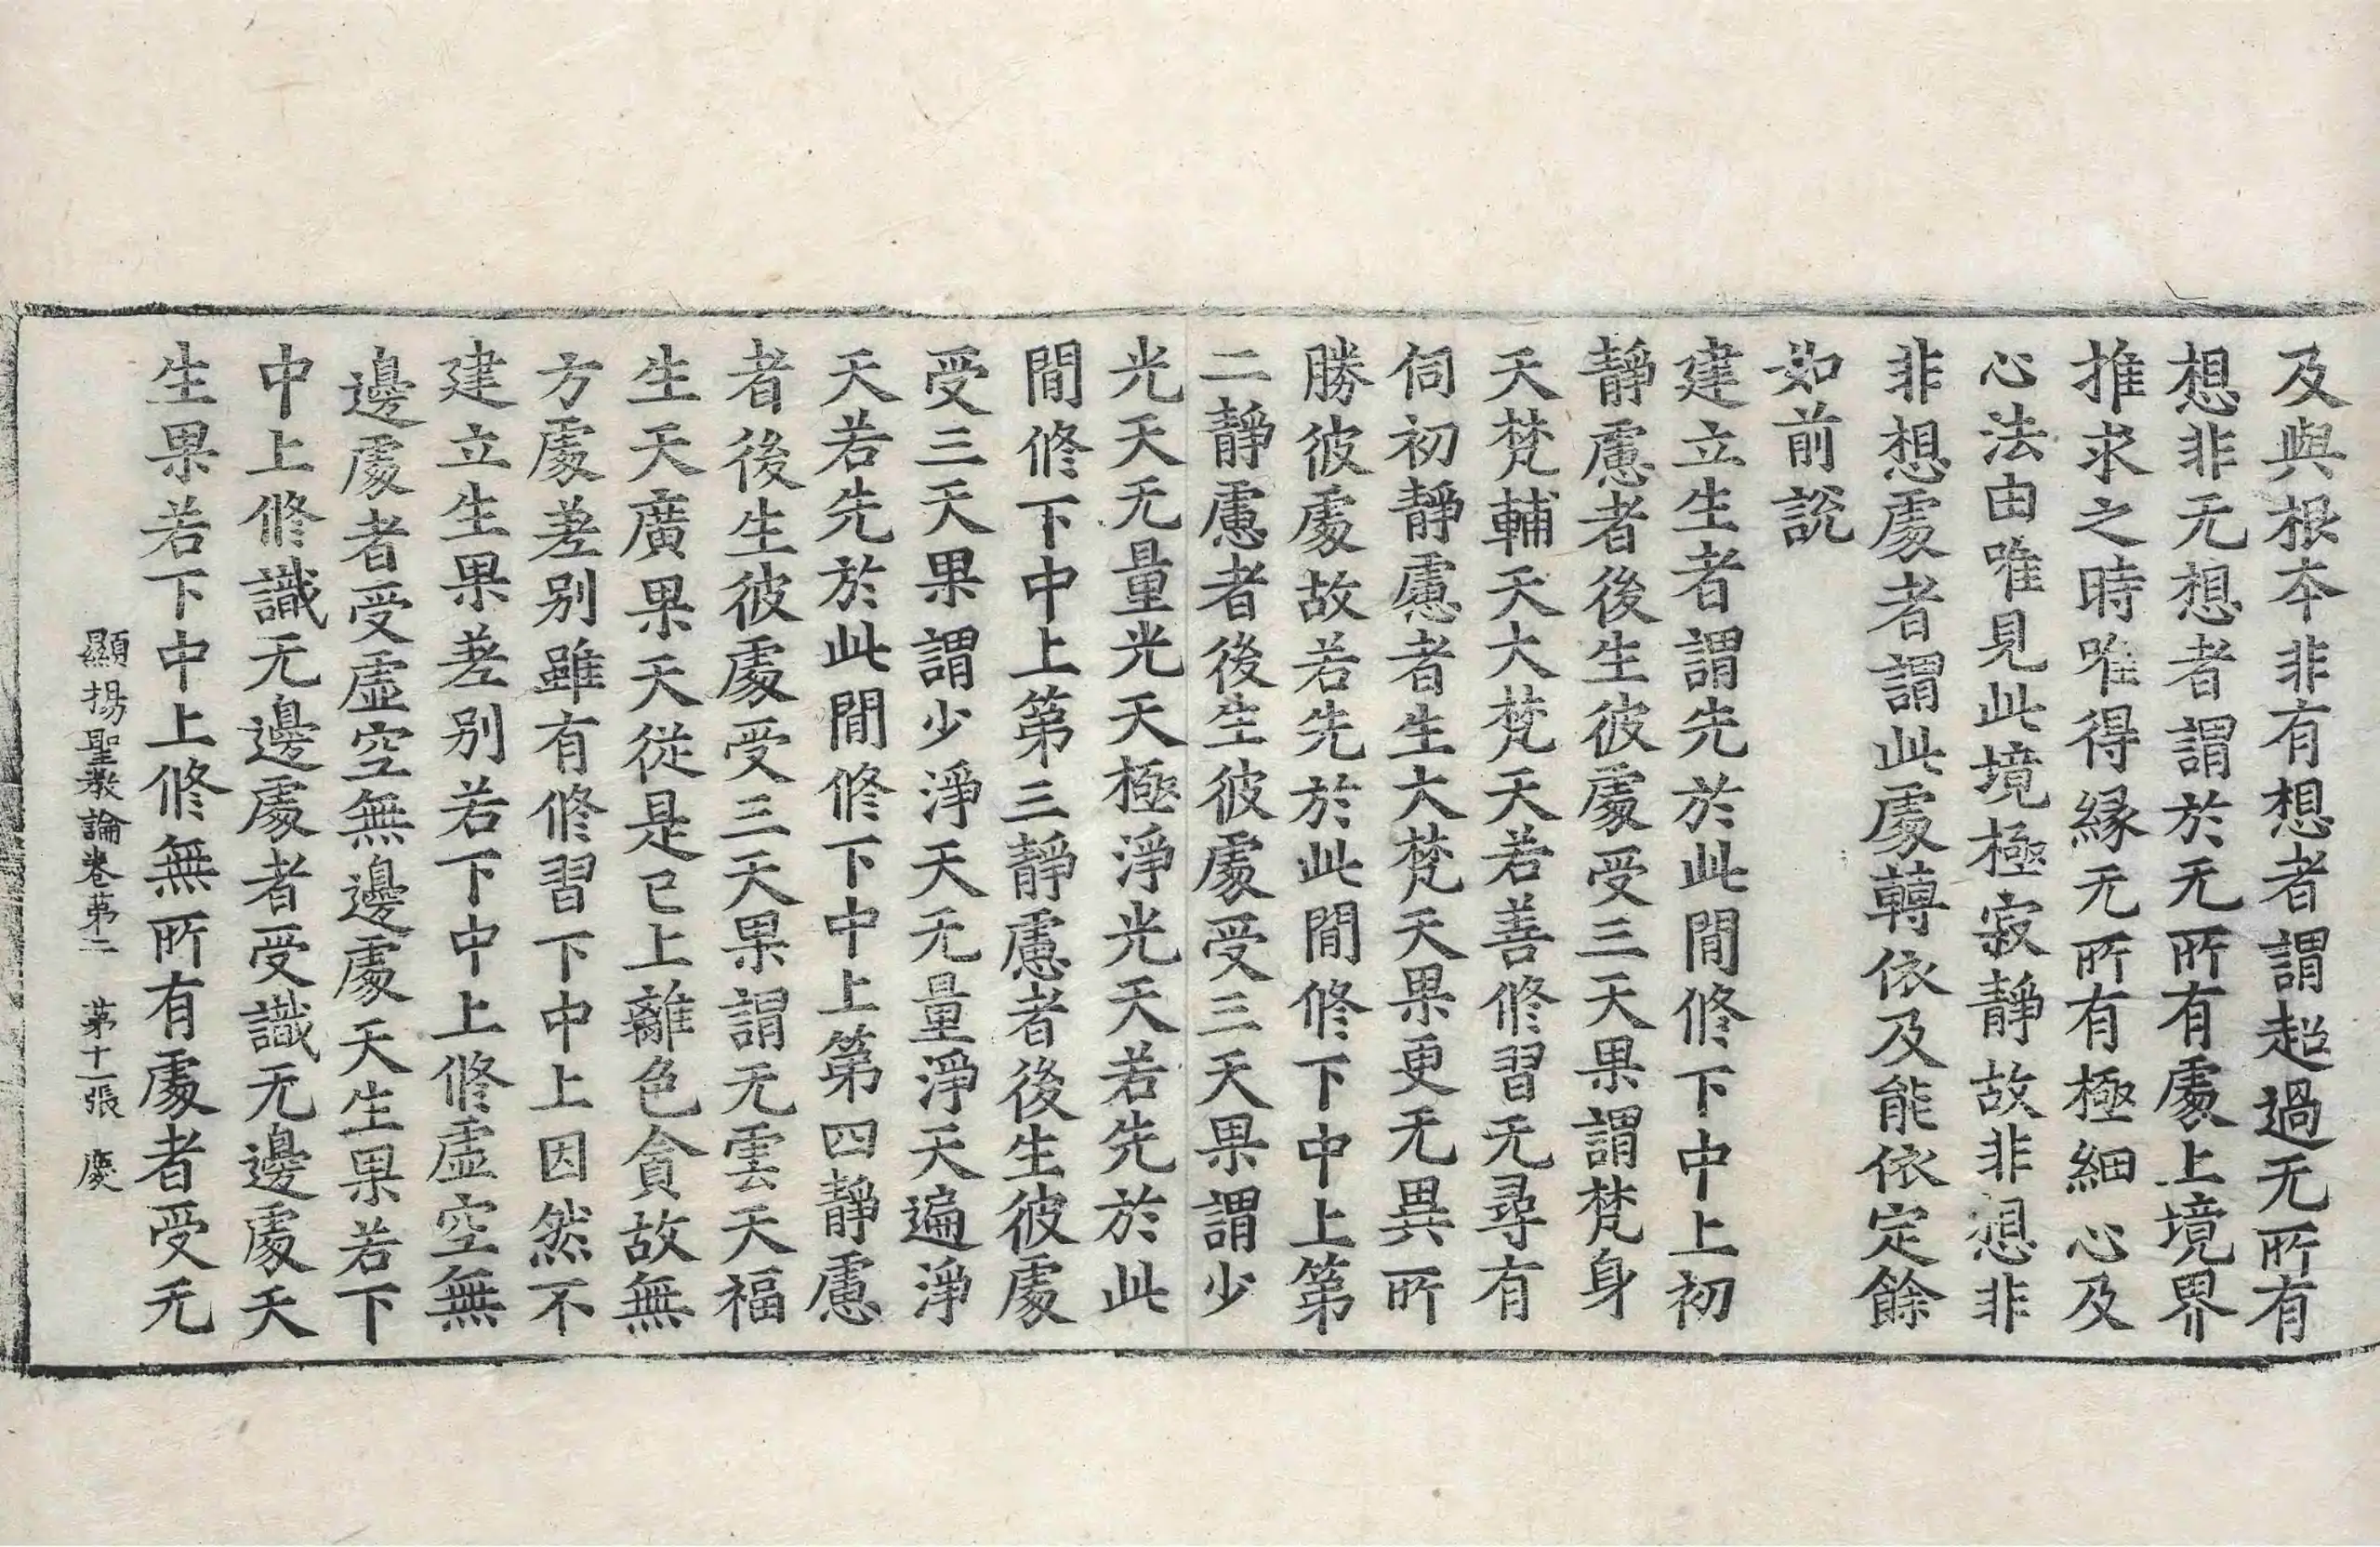 及與根本非有想者謂超過无所有
想非无想者謂於无所有處上境界
推求之時唯得緣无所有極細心及
心法由唯見此境極寂靜故非想非
非想處者謂此處轉依及能依定餘
如前說
建立生者謂先於此閒修下中上初
靜慮者後生彼處受三天果謂梵身
天梵輔天大梵天若善修習无尋有
伺初靜慮者生大梵天果更无異所
勝彼處故若先於此閒修下中上第
二靜慮者後生彼處受三天果謂少
光天无量光天極淨光天若先於此
閒修下中上第三靜慮者後生彼處
受三天果謂少淨天无量淨天遍淨
天若先於此閒修下中上第四靜慮
者後生彼處受三天果謂无雲天福
生天廣果天從是已上離色貪故無
方處差別雖有修習下中上因然不
建立生果差別若下中上修虛空無
邊處者受虛空無邊處天生果若下
中上修識无邊處者受識无邊處天
生果若下中上修無所有處者受无
顯揚聖教論卷第二 第十一張 慶